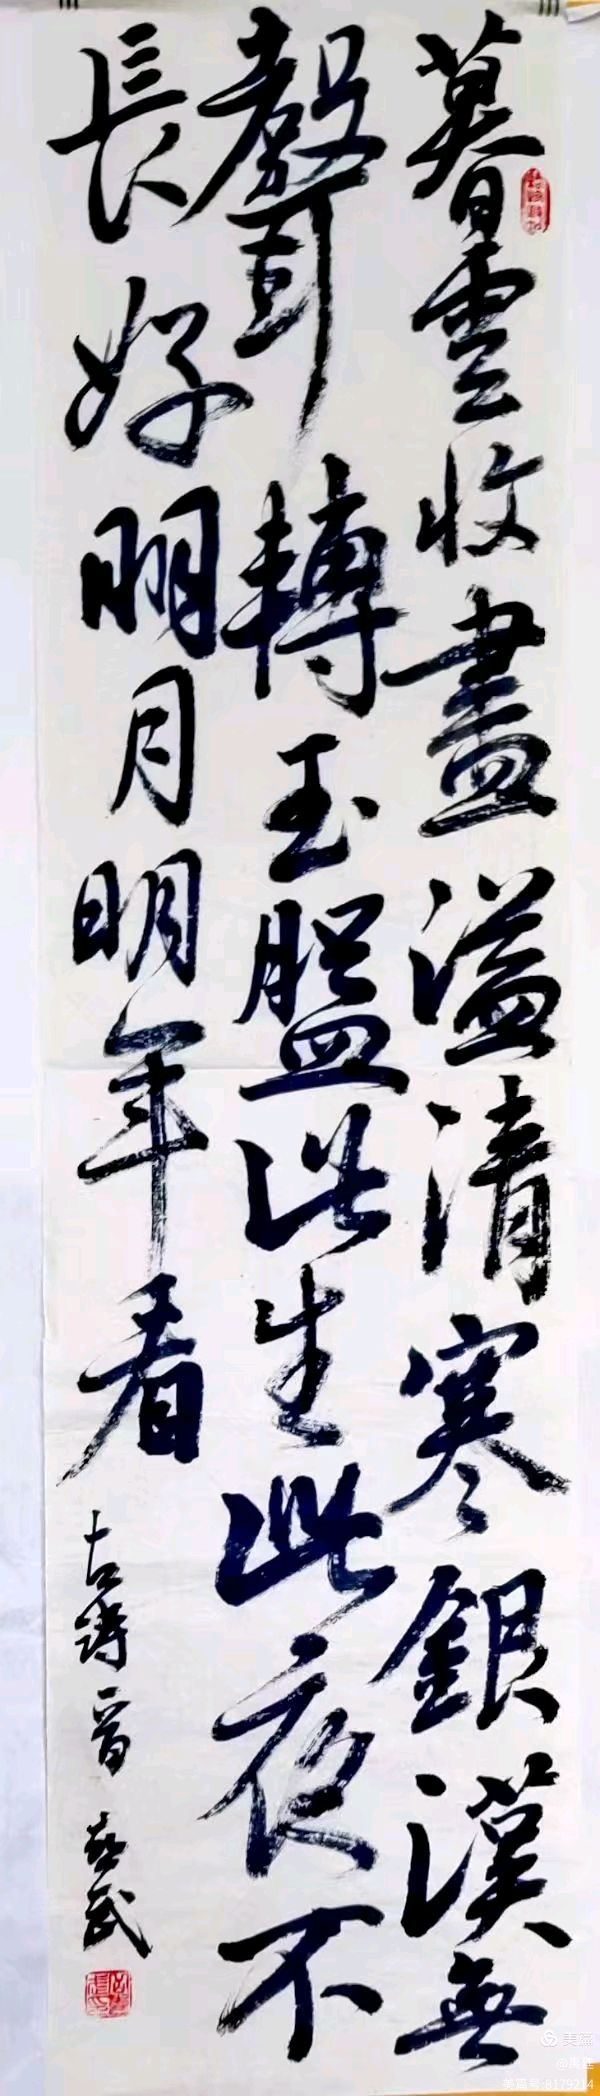 暮雲收盡溢清寒銀漢無
聲轉玉盤此生此夜不
長好明月明年看
古詩一首 武
美篇
美篇号:8179214